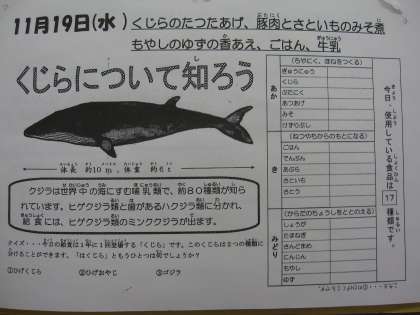 11月19日(水)
くじらのたつたあげ、豚肉とさといものみそ煮
もやしのゆずの香あえ、ごはん、牛乳
くじらについて知ろう
体長 約10m、体重 約6t
クジラは世界中の海にすむ哺乳類で、約80種類が知ら
れています。ヒゲクジラ類と歯があるハクジラ類に分かれ、
給食には、ヒゲクジラ類のミンククジラが出ます。
クイズ・・・今日の給食は1年に1回登場する「くじら」です。このくじらは2つの種類に
分けることができます。「はくじら」ともうひとつは何でしょうか?
①ひげくじら ②ひげおやじ ③ゴジラ
今日、使用している食品は17種類です。
あか
(ちやにく、ほねをつくる)
ぎゅうにゅう
くじら
ぶたにく
あつあげ
みそ
けずりぶし
き
(ねつやちからのもとになる)
ごはん
でんぷん
あぶら
さといも
さとう
みどり
(からだのちょうしをととのえる)
しょうが
たまねぎ
さんどまめ
にんじん
もやし
ゆず